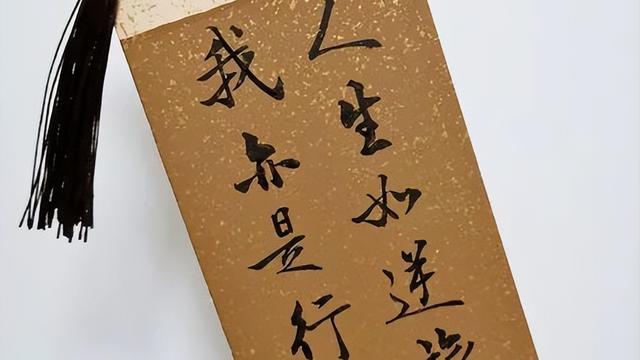 人生如逆旅
我亦是行